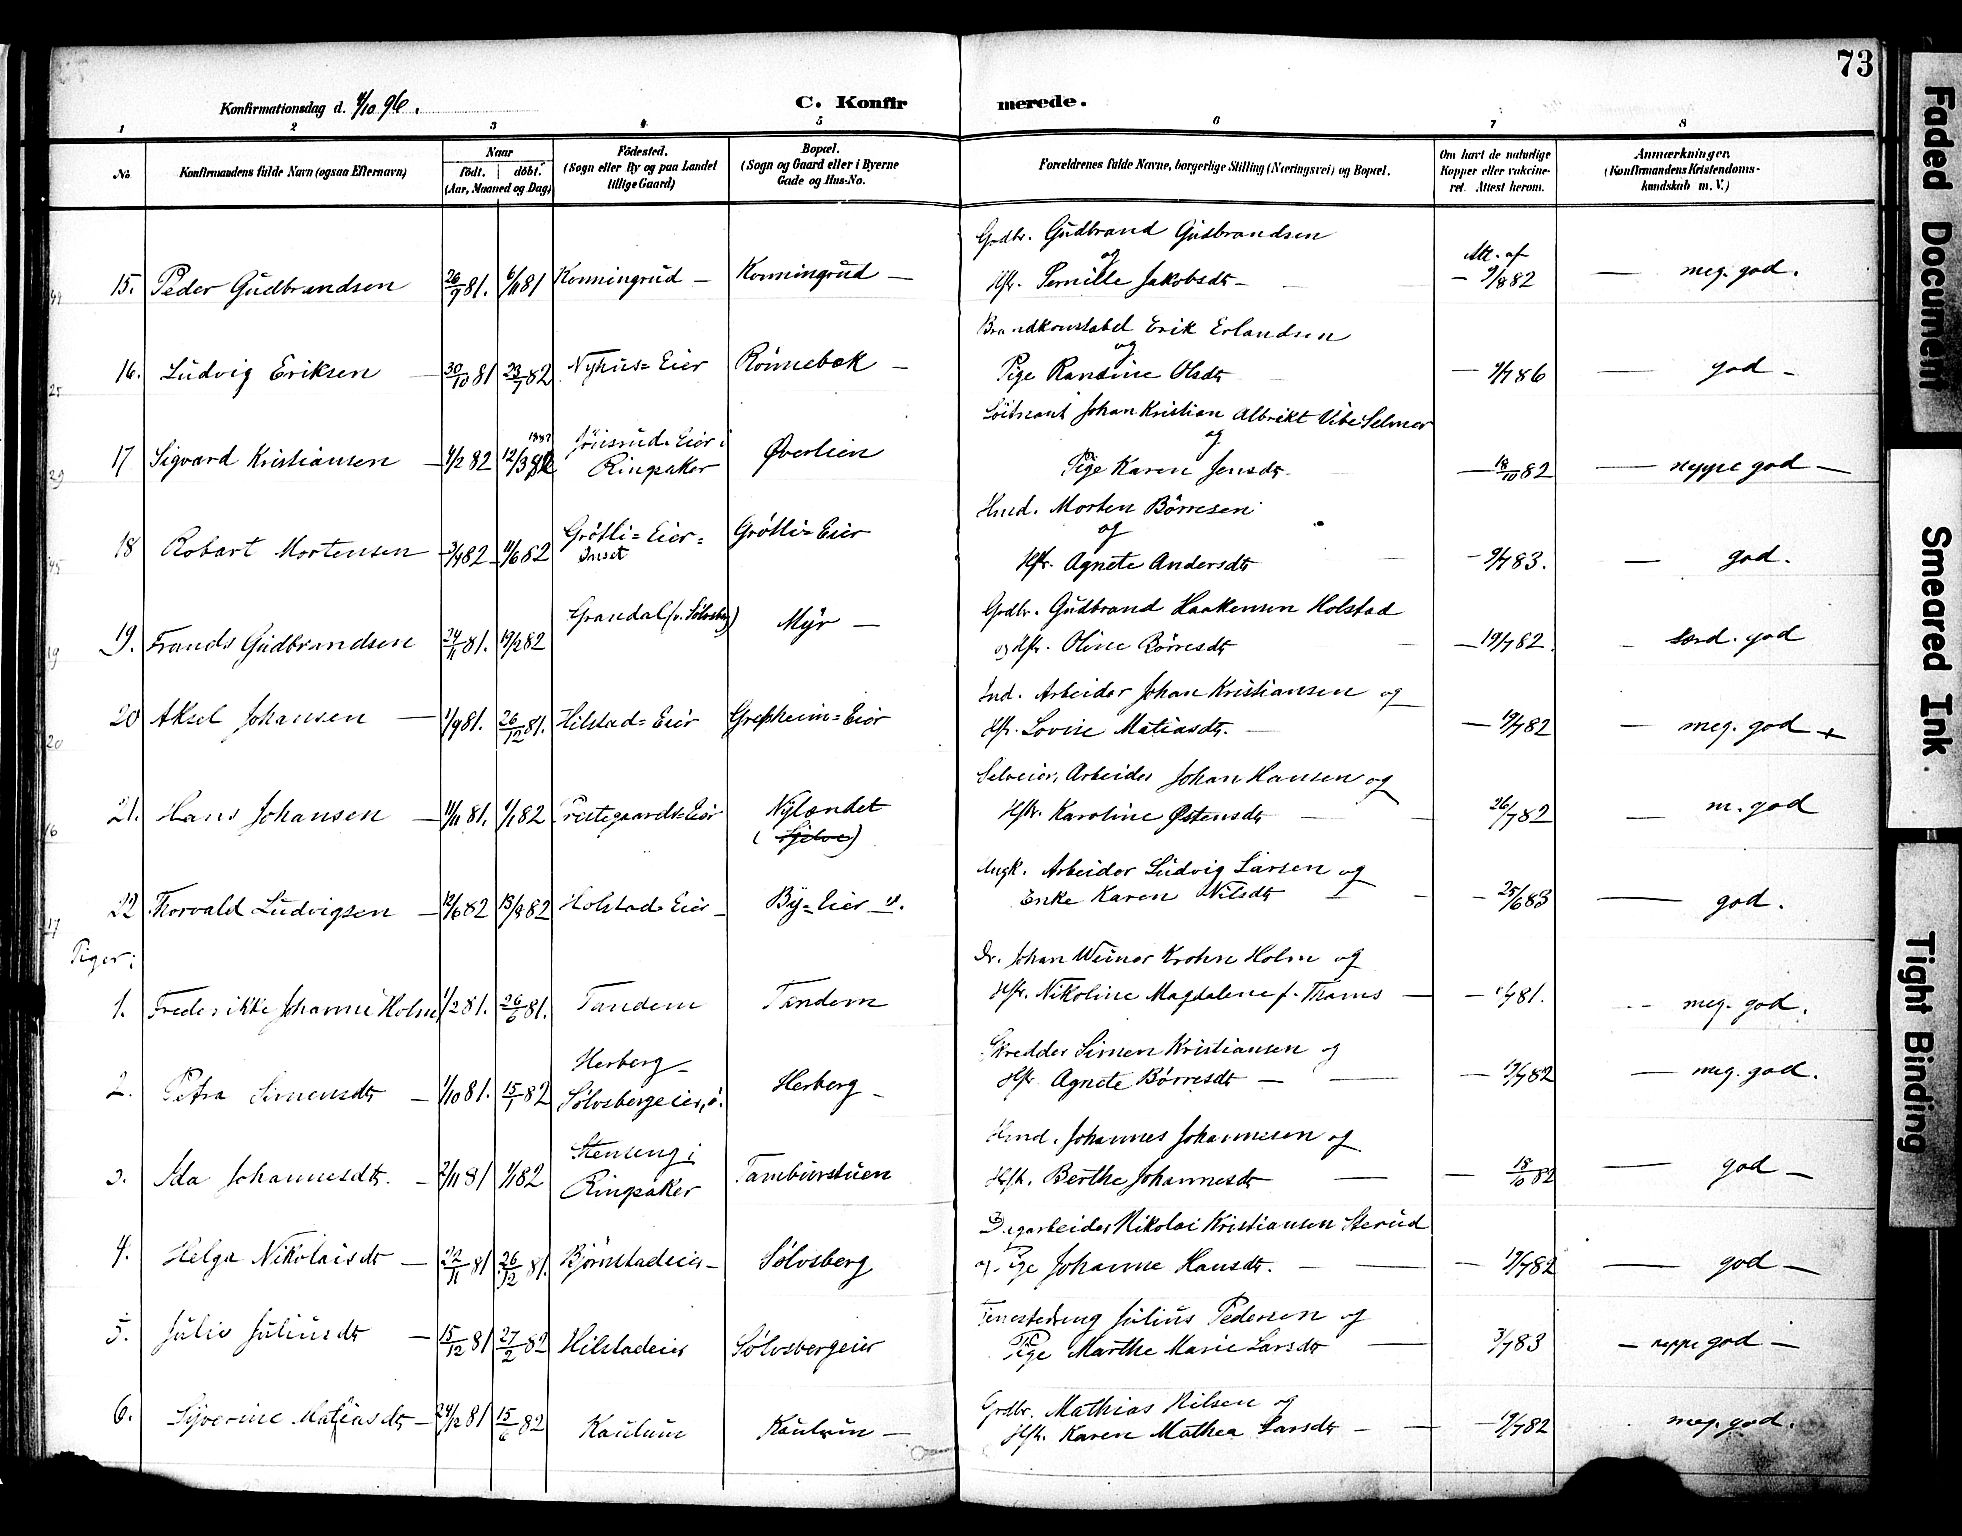 73
Konfirmationsdag d. 4/10 96.
C. Konfirmerede.
1 2 3 4 5 6 7 8
No
Konfirmandens fulde Navn (ogsaa Efternavn)
Naar
født. døbt.
(Aar, Maaned og Dag)
Fødested.
(Sogn eller By og paa Landet
tillige Gaard)
Bopæl.
(Sogn og Gaard eller i Byerne
Gade og Hus-No.
Forældrenes fulde Navne, borgerlige Stilling (Næringsvei) og Bopæl.
Om havt de naturlige
Kopper eller vakcine-
ret. Attest herom.
Anmærkninger.
(Konfirmandens Kristendoms-
kundskab m. V.)
Godbr. Gudbrand Gudbrandsen
og
Att. af
15. Peder Gudbrandsen 26/9 81. 6/11 81 Konningrud — Konningrud — Hfr. Pernille Jakobsdt — 9/8 82 — meg. god.
Brandkonstabel Erik Erlandsen
og
16. Ludvig Eriksen — 30/10 81 23/1 82 Nyhus=Eier Rönnebæk — Pige Randine Olsdt — 9/7 86 — god —
Löitnant Johan Kristian Albrikt Vibe Selmer
og
17 Sigvard Kristiansen — 4/2 82 12/3 82 Eier i
Ringsaker Øverlien Pige Karen Jensdt. — 18/10 82 — neppe god —
Hmd. Morten Börresen
og
18 Robart Mortensen 3/4 82 11/6 82 Grötli=Eier= Grötli=Eier
Hfr. Agnete Andersdt — 9/7 83. — god.
Godbr. Gudbrand Haakensen Holstad
19. Frands Gudbrandsen 24/11 81. 19/2 82 Grandal (v. Sölvsberg) Myr — og Hfr. Oline Börresdt — 19/7 82. — særd. god
Ind. Arbeider Johan Kristiansen og
20 Aksel Johansen — 1/9 81. 26/12 81. Hilstad=Eier Grefsheim=Eier Hfr. Lovise Matiasdt. — 19/7 82 — meg. god +
Selveier, Arbeider Johan Hansen og
21. Hans Johansen — 11/11 81. 1/1 82 Prestegaards=Eier Nylændet
(Sjelve) Hfr. Karoline Østensdt — 26/7 82 — m. god
Ungk. Arbeider Ludvig Larsen og
22 Thorvald Ludvigsen — 12/6 82 13/8 82 Holstad=Eier — By=Eier v. Enke Karen Nilsdt — 25/6 83 — god.
Piger:
Dr. Johan Werner Krohn Holm og
1. Frederikke Johanne Holm 1/2 81. 26/6 81. Tandem Tandem Hfr. Nikoline Magdalene f. Thams — 81. — meg. god.
Skredder Simen Kristiansen og
2. Petra Simensdt — 1/10 81. 15/1 82 Herberg —
Sölvsbergeier, ö. Herberg — Hfr. Agnete Börresdt — 19/7 82 — meg. god.
Hmd. Johannes Johannesen og
3. Ida Johannesdt. — 2/11 81 1/1 82 Stenseng i
Ringsaker Tamburstuen Hfr. Berthe Johannesdt — 18/10 82 — god —
Dagarbeider Nikolai Kristiansen Sterud
4. Helga Nikolaisdt — 22/11 81 26/12 81. Björnstadeier — Sölvsberg og Pige Johanne Hansdt. — 19/7 82 — god —
Tjenestedreng Julius Pedersen og
5. Julie Juliusdt — 15/12 81 27/2 82 Hilstadeier Sölvsbergeier Pige Marthe Marie Larsdt — 3/7 83 — neppe god —
Grdbr. Mathias Nilsen og
6. Syverine Matiasdt — 24/12 81 15/6 82 Kaulum Kaulum — Hfr. Karen Mathea Larsdt — 19/7 82 meg. god.
Faded Document
Smeared Ink.
Tight Binding